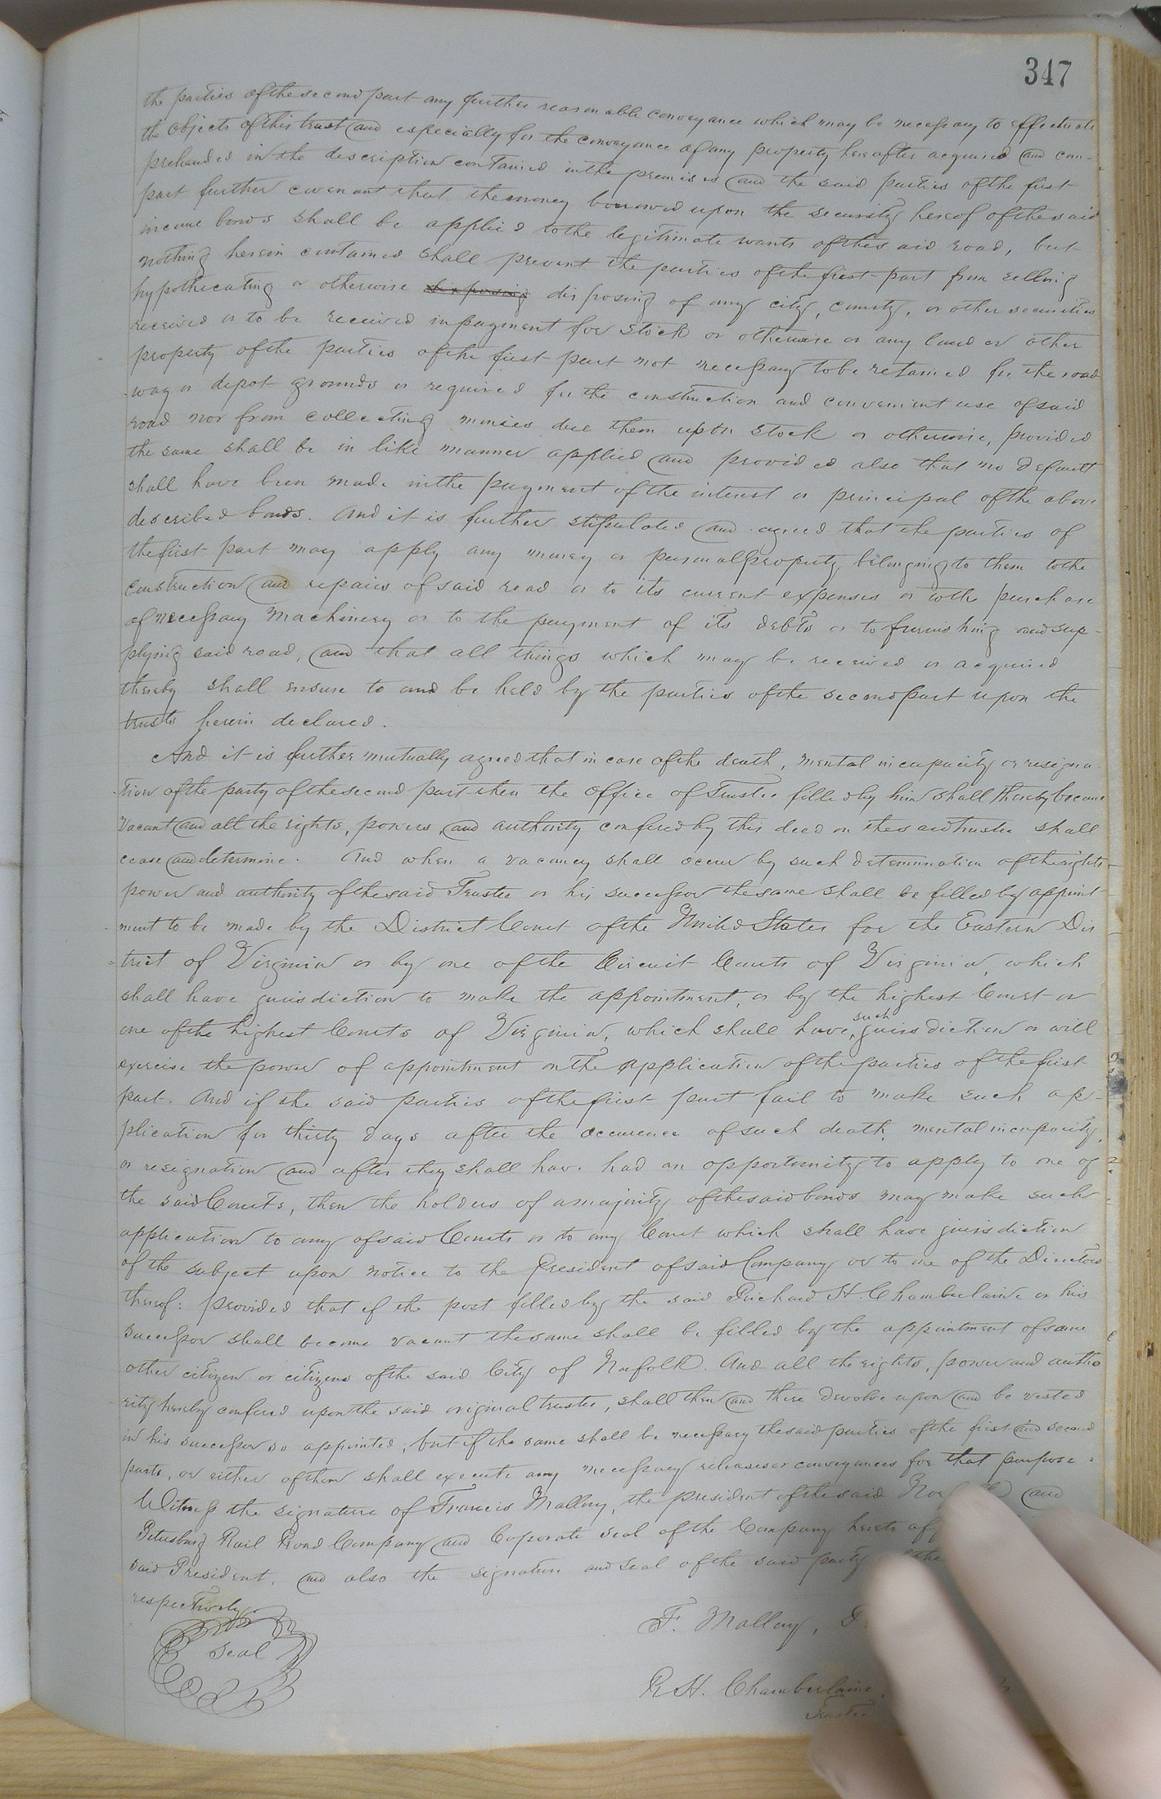 347
the parties of the second part any further reasonable conveyance which may be necessary to effectuate
the objects of this trust and especially for the conveyance of any property hereafter acquired and com-
prehended in the description contained in the premises and the said parties of the first
part further covenant that the money borrowed upon the security hereof of the said
income bonds shall be applied to the legitimate wants of the said road, but
nothing herein contained shall prevent the parties of the first part from selling
hypothecating or otherwise disposing of any city, county, or other securities
received or to be received in payment for stock or otherwise or any land or other
property of the parties of the first part not necessary to be retained for the road
way or depot grounds or required for the construction and convenient use of said
road nor from collecting monies due them upon stock or otherwise, provided
the same shall be in like manner applied and provided also that no default
shall have been made in the payment of the interest or principal of the above
described bonds. And it is further stipulated and agreed that the parties of
the first part may apply any money or personal property belonging to them to the
construction and repairs of said road or to its current expenses or to the purchase
of necessary machinery or to the payment of its debts or to furnishing and sup-
plying said road, and that all things which may be received or acquired
thereby shall ensure to and be held by the parties of the second part upon the
trusts herein declared.
And it is further mutually agreed that in case of the death, mental incapacity or resigna-
tion of the party of the second part then the office of Trustee filled by him shall thereby become
vacant and all the rights, powers, and authority confered by this deed on the said trustee shall
cease and determine. And when a vacancy shall occur by such determination of the rights
power and authority of the said Trustee or his successor the same shall be filled by appoint
ment to be made by the District Court of the United States for the Eastern Dis
trict of Virginia or by one of the Circuit Courts of Virginia, which
shall have jurisdiction to make the appointment, or by the highest Court or
one of the highest Courts of Virginia, which shall have such jurisdiction or will
exercise the power of appointment on the application of the parties of the first
part. And if the said parties of the first part fail to make such ap-
plication for thirty days after the occurence of such death, mental incapacity,
or resignation and after they shall have had an opportunity to apply to one of
the said Courts, then the holders of a majority of the said bonds may make such
application to any of said Courts or to any Court which shall have jurisdiction
of the subject upon notice to the President of said Company or to one of the Directors
thereof: provided that if the post filled by the said Richard H. Chamberlaine or his
successor shall become vacant the same shall be filled by the appointment of some
other citizen or citizens of the said City of Norfolk. And all the rights, power and autho
rity hereby confered upon the said original trustee, shall then and there devolve upon and be vested
in his successor so appointed, but if the same shall be necessary the said parties of the first and second
parts, or either of them shall execute any necessary releases or conveyances for that purpose.
Witness the signature of Francis Mallory, the president of the said and
Petersburg Rail Road Company and Corporate seal of the Company hereto
said President, and also the signature and seal of the said party
respectively.
F. Mallory,
Seal
R. H. Chamberlaine,
Trustee